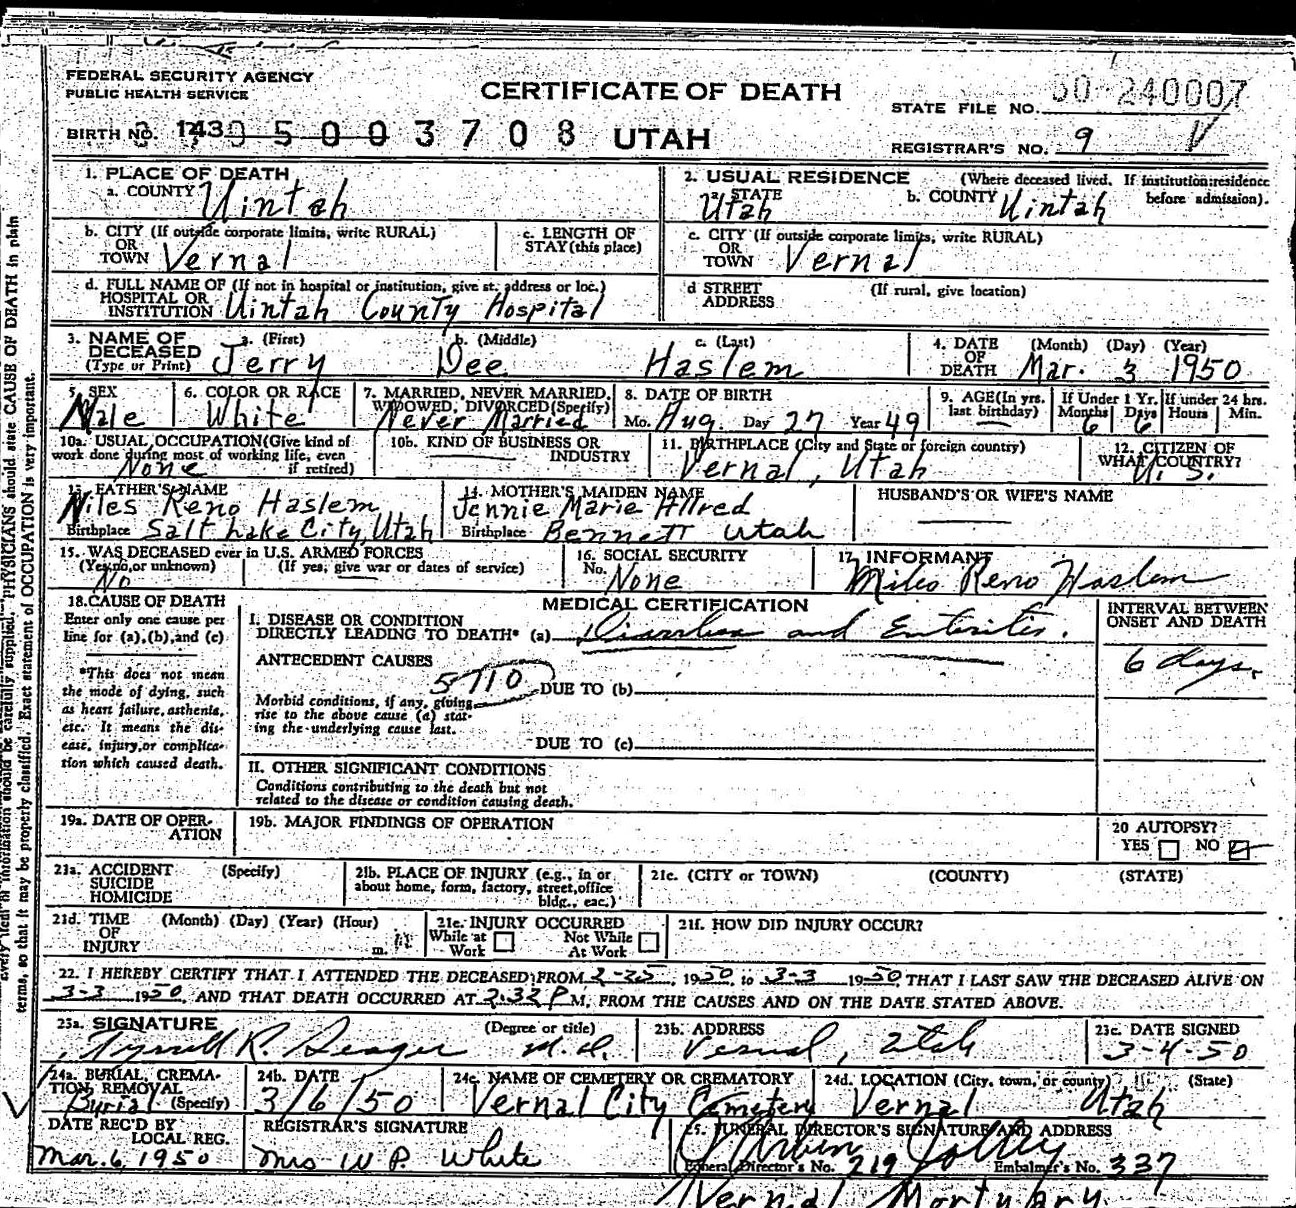 FEDERAL SECURITY AGENCY
PUBLIC HEALTH SERVICE
CERTIFICATE OF DEATH
STATE FILE NO. 50 240007
BIRTH NO. 143 05003708 UTAH
REGISTRAR'S NO. 9
1. PLACE OF DEATH
a. COUNTY Uintah
2. USUAL RESIDENCE (Where deceased lived. If institution: residence before admission).
a. STATE Utah b. COUNTY Uintah
b. CITY (If outside corporate limits, write RURAL)
OR
TOWN Vernal
c. LENGTH OF
STAY (this place)
c. CITY (If outside corporate limits, write RURAL)
OR
TOWN Vernal
d. FULL NAME OF (If not in hospital or institution, give st. address or loc.)
HOSPITAL OR
INSTITUTION Uintah County Hospital
d STREET (If rural, give location)
ADDRESS
3. NAME OF DECEASED (Type or Print)
a. (First) Jerry b. (Middle) Dee c. (Last) Haslem
4. DATE OF DEATH (Month) (Day) (Year)
Mar. 3 1950
5. SEX Male
6. COLOR OR RACE White
7. MARRIED, NEVER MARRIED, WIDOWED, DIVORCED (Specify) Never Married
8. DATE OF BIRTH
Mo. Aug. Day 27 Year 49
9. AGE (In yrs. last birthday)
If Under 1 Yr. Months 6 Days 6
If under 24 hrs. Hours Min.
10a. USUAL OCCUPATION (Give kind of work done during most of working life, even if retired) None
10b. KIND OF BUSINESS OR INDUSTRY
11. BIRTHPLACE (City and State or foreign country) Vernal, Utah
12. CITIZEN OF WHAT COUNTRY? U. S.
13. FATHER'S NAME Niles Reno Haslem
Birthplace Salt Lake City, Utah
14. MOTHER'S MAIDEN NAME Jennie Marie Allred
Birthplace Bennett Utah
HUSBAND'S OR WIFE'S NAME
15. WAS DECEASED ever in U.S. ARMED FORCES
(Yes, no, or unknown) (If yes, give war or dates of service)
No
16. SOCIAL SECURITY
No. None
17. INFORMANT
Miles Reno Haslem
18. CAUSE OF DEATH
Enter only one cause per line for (a), (b), and (c)
*This does not mean the mode of dying, such as heart failure, asthenia, etc. It means the disease, injury, or complication which caused death.
MEDICAL CERTIFICATION
INTERVAL BETWEEN ONSET AND DEATH
I. DISEASE OR CONDITION
DIRECTLY LEADING TO DEATH* (a) Diarrhea and Enteritis.
6 days.
ANTECEDENT CAUSES
5710
DUE TO (b)
Morbid conditions, if any, giving rise to the above cause (a) stating the underlying cause last.
DUE TO (c)
II. OTHER SIGNIFICANT CONDITIONS
Conditions contributing to the death but not related to the disease or condition causing death.
19a. DATE OF OPERATION
19b. MAJOR FINDINGS OF OPERATION
20 AUTOPSY?
YES NO
21a. ACCIDENT (Specify)
SUICIDE
HOMICIDE
21b. PLACE OF INJURY (e.g., in or about home, form, factory, street, office bldg., eac.)
21c. (CITY or TOWN) (COUNTY) (STATE)
21d. TIME (Month) (Day) (Year) (Hour)
OF
INJURY m.
21e. INJURY OCCURRED
While at Work Not While At Work
21f. HOW DID INJURY OCCUR?
22. I HEREBY CERTIFY THAT I ATTENDED THE DECEASED FROM 2-25, 1950, to 3-3 1950 THAT I LAST SAW THE DECEASED ALIVE ON
3-3 1950, AND THAT DEATH OCCURRED AT 2:32 P M, FROM THE CAUSES AND ON THE DATE STATED ABOVE.
23a. SIGNATURE (Degree or title)
Tyrrell R. Seager M.D.
23b. ADDRESS
Vernal, Utah
23c. DATE SIGNED
3-4-50
24a. BURIAL, CREMATION, REMOVAL (Specify) Burial
24b. DATE
3/6/50
24c. NAME OF CEMETERY OR CREMATORY
Vernal City Cemetery
24d. LOCATION (City, town, or county) (State)
Vernal Utah
DATE REC'D BY LOCAL REG.
Mar. 6, 1950
REGISTRAR'S SIGNATURE
Mrs W P. White
25. FUNERAL DIRECTOR'S SIGNATURE AND ADDRESS
Funeral Director's No. 219 Embalmer's No. 337
Vernal Mortuary
PHYSICIANS should state CAUSE OF DEATH in plain
terms, so that it may be properly classified. Exact statement of OCCUPATION is very important.